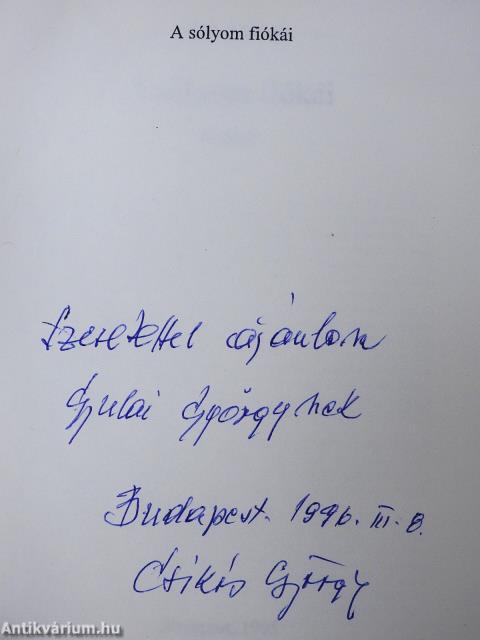 A sólyom fiókái
Szeretettel ajánlom
Gyulai Györgynek
Budapest. 1996. III. 8.
Csikós György
Antikvárium.hu